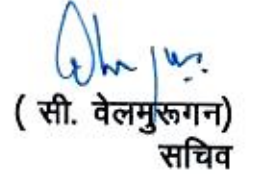 ( सी. वेलमुरूगन)
सचिव